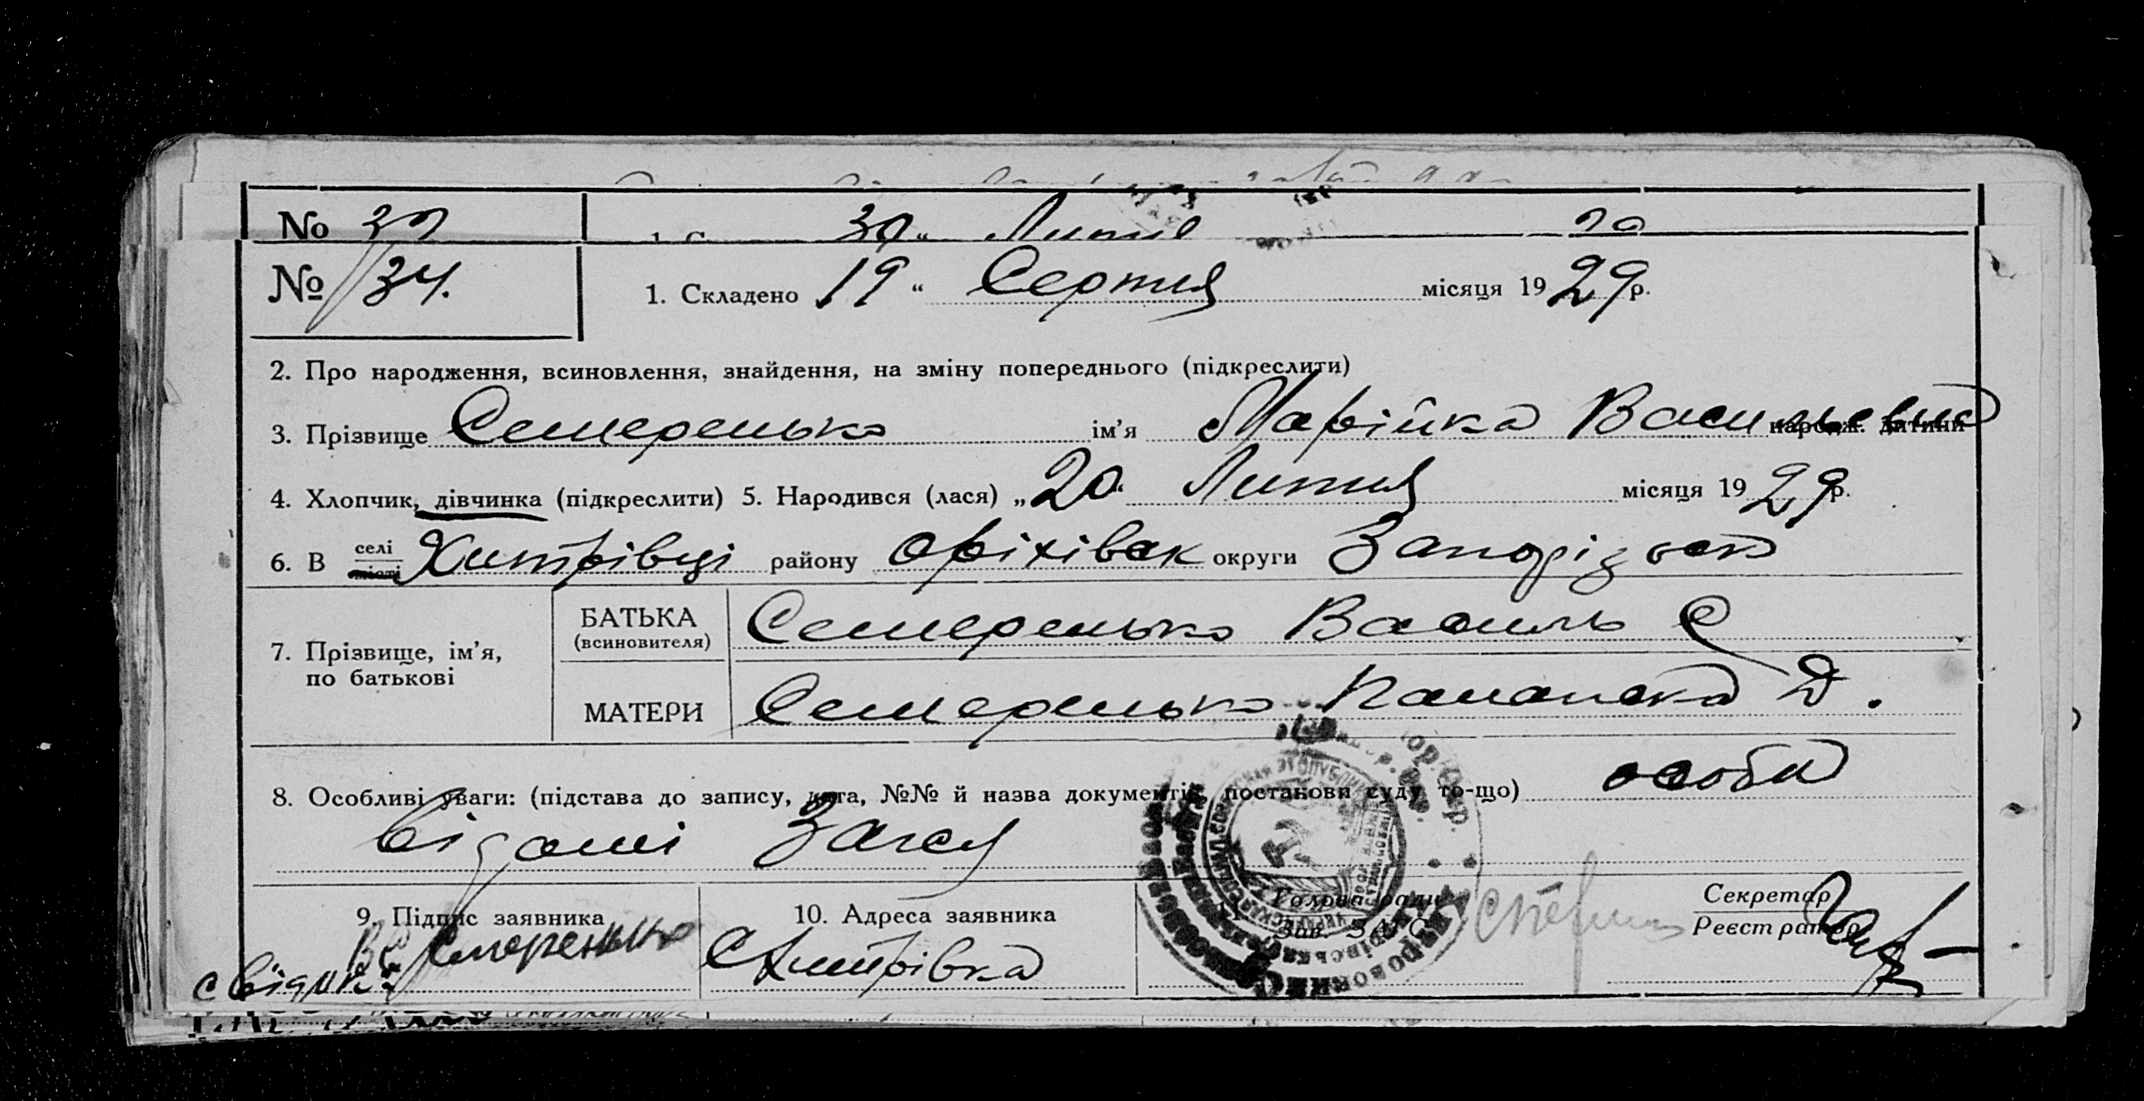 № 34.
1. Складено 19 " Серпня місяця 1929 р.
2. Про народження, всиновлення, знайдення, на зміну попереднього (підкреслити)
3. Прізвище Семеренько ім'я Марійка Васильевна народж. дитини
4. Хлопчик, дівчинка (підкреслити) 5. Народився (лася) „20" Липня місяця 1929 р.
6. В селі Хитрівці району Оріхівськ округи Запорізськ
7. Прізвище, ім'я, по батькові
БАТЬКА (всиновителя) Семеренько Василь С
МАТЕРИ Семеренько Палажка Д.
8. Особливі уваги: (підстава до запису, дата, №№ й назва документів, постанови суду то-що) особи
відомі Загсу
9. Підпис заявника
10. Адреса заявника
Голова ради
Зав. ЗАГС
Секретар
Реєстратор
Семеренько
с Хитрівка
свідки: